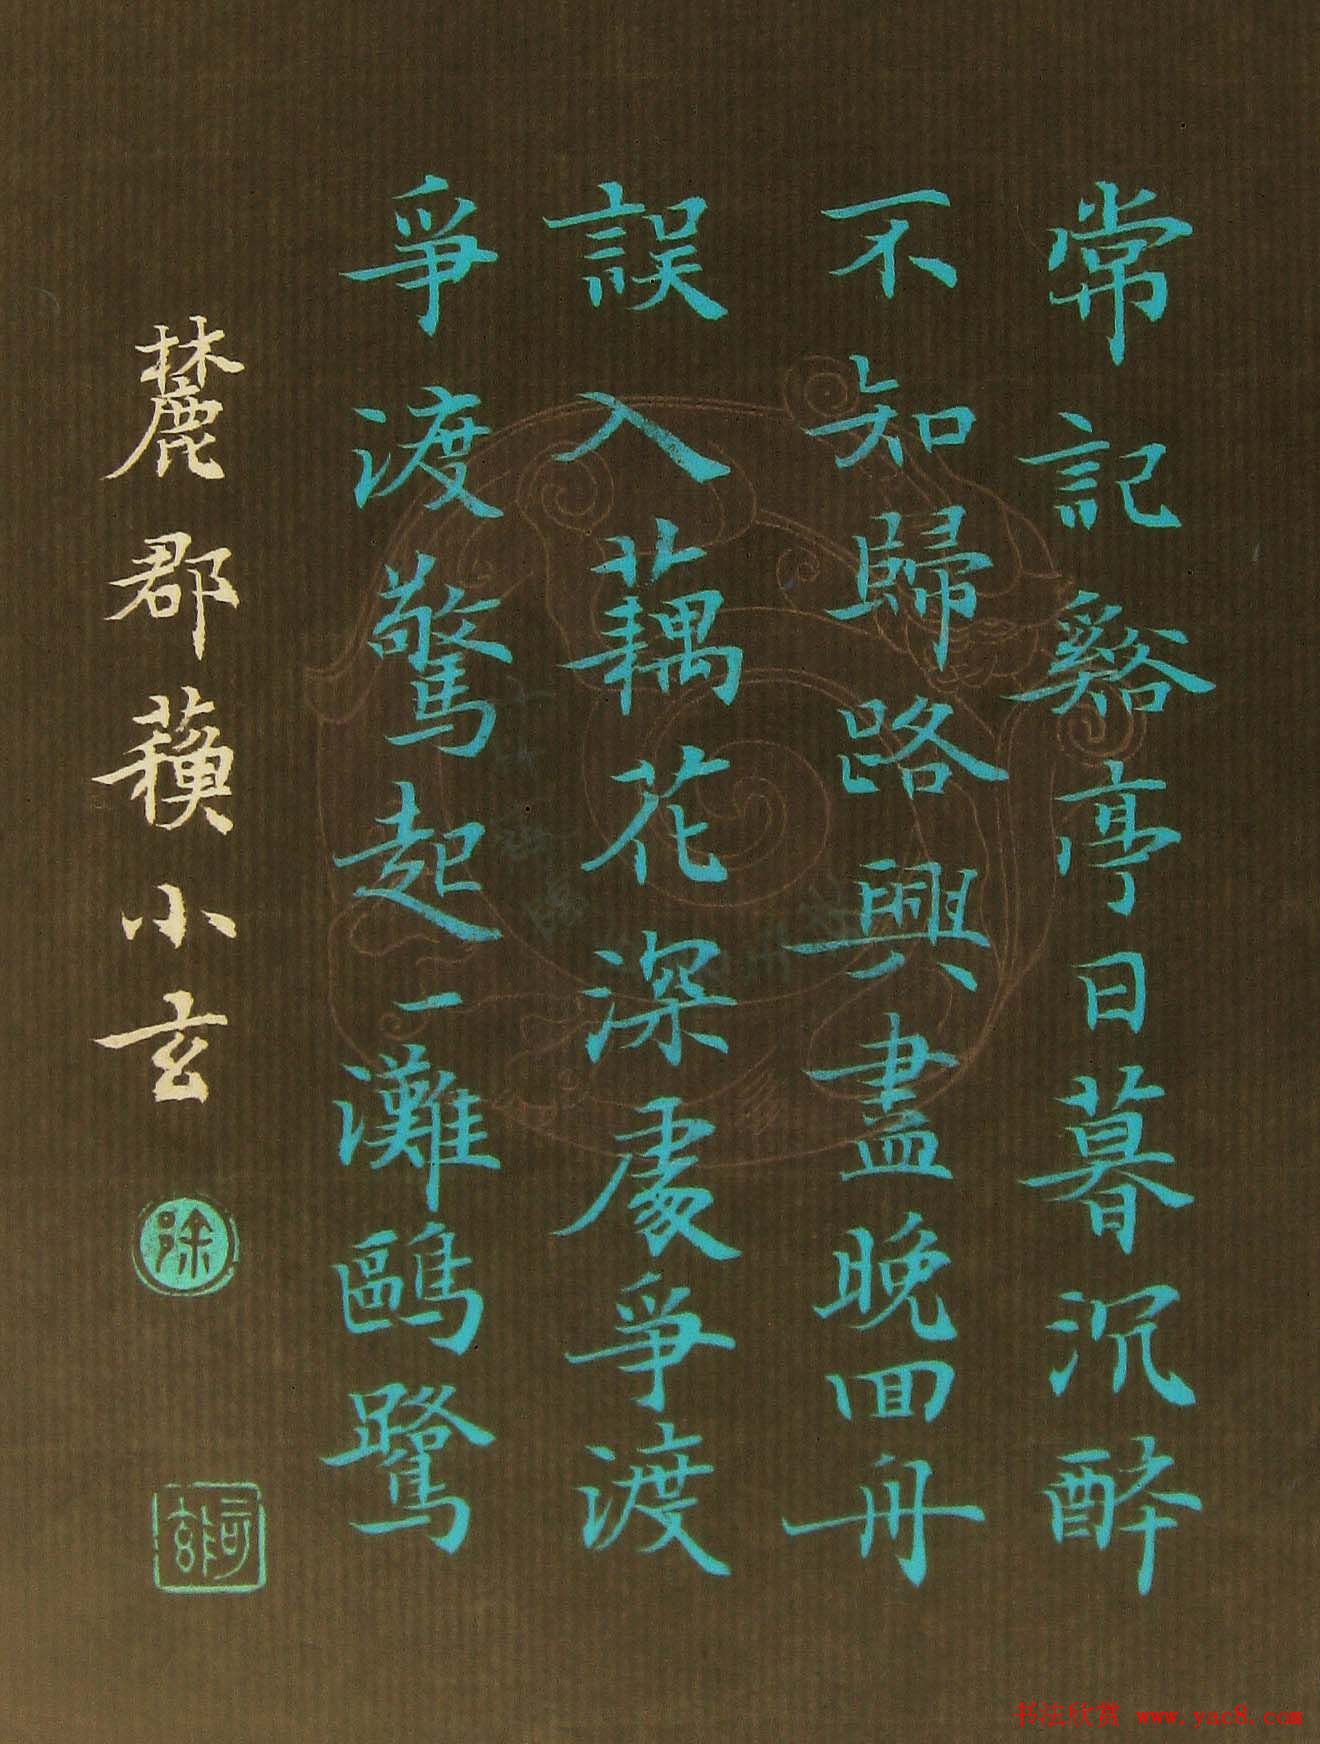 常記谿亭日暮沉酔
不知歸路興盡晚回舟
誤入藕花深處爭渡
爭渡驚起一灘鷗鷺
麓郡蘋小玄
书法欣赏 www.yac8.com